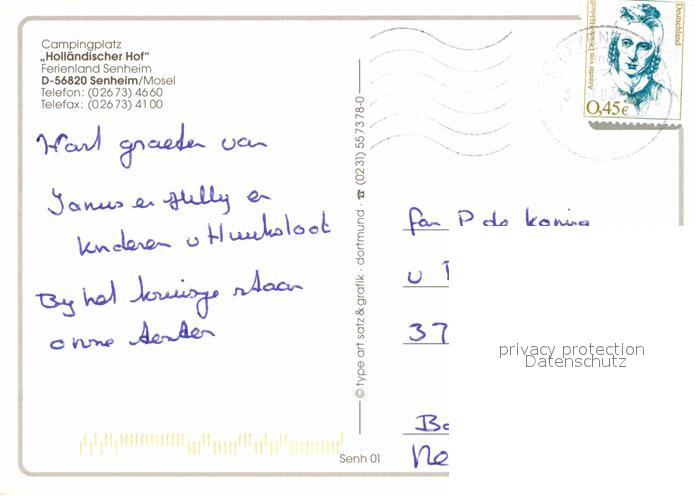 Campingplatz
„Holländischer Hof"
Ferienland Senheim
D-56820 Senheim/Mosel
Telefon: (02673) 4660
Telefax: (02673) 4100
Hart graeten van
Janus en Helly en
Kinderen v Hunksloot
By het kruisje staan
onne tenten
© type art satz & grafik · dortmund · ☎ (0231) 557378-0
Senh 01
Annette von Droste-Hülshoff
Deutschland
0,45€
fam P de
37
privacy protection
Datenschutz